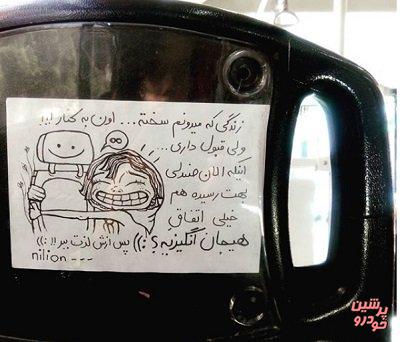 زندگی که میدونم سخته... اون به کنار
ولی قبول داری...
اینکه الان صندلی
بهت رسیده هم
خیلی اتفاق
هیجان انگیزیه؟ :)) پس ازش لذت ببر !! :))
nilion ---
پرشین
خودرو